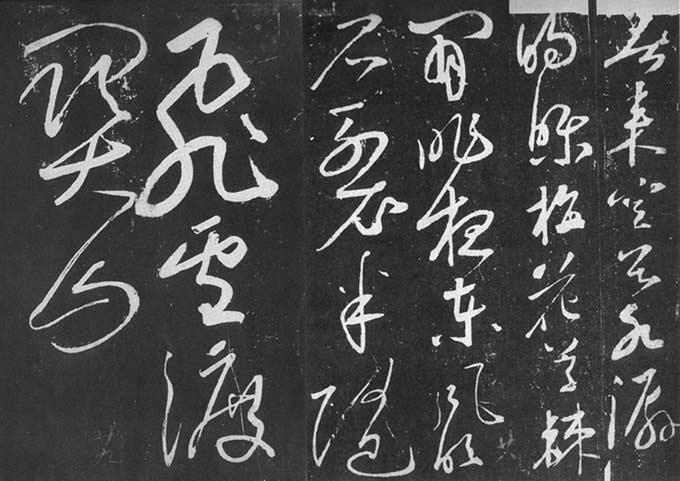 春來空谷水潺潺
的皪梅花草棘
間昨夜東風吹
石裂半隨
飛雪渡
關山